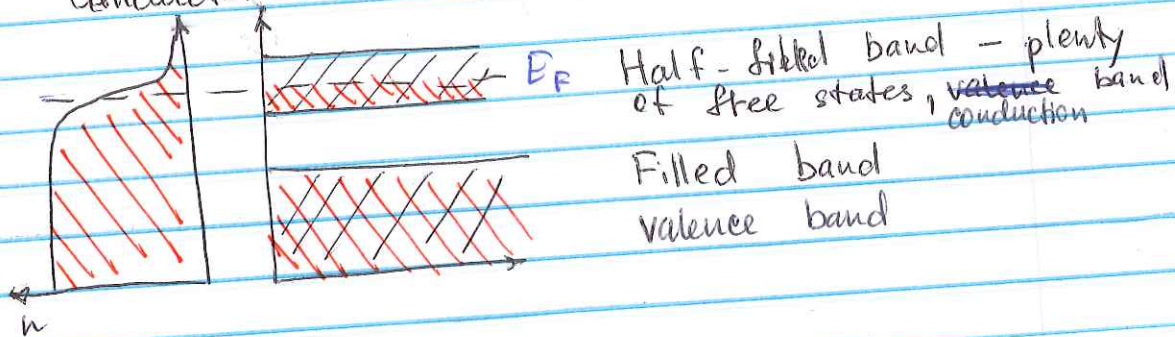 E_F Half-filled band - plenty
of free states, valence band
conduction
Filled band
valence band
n